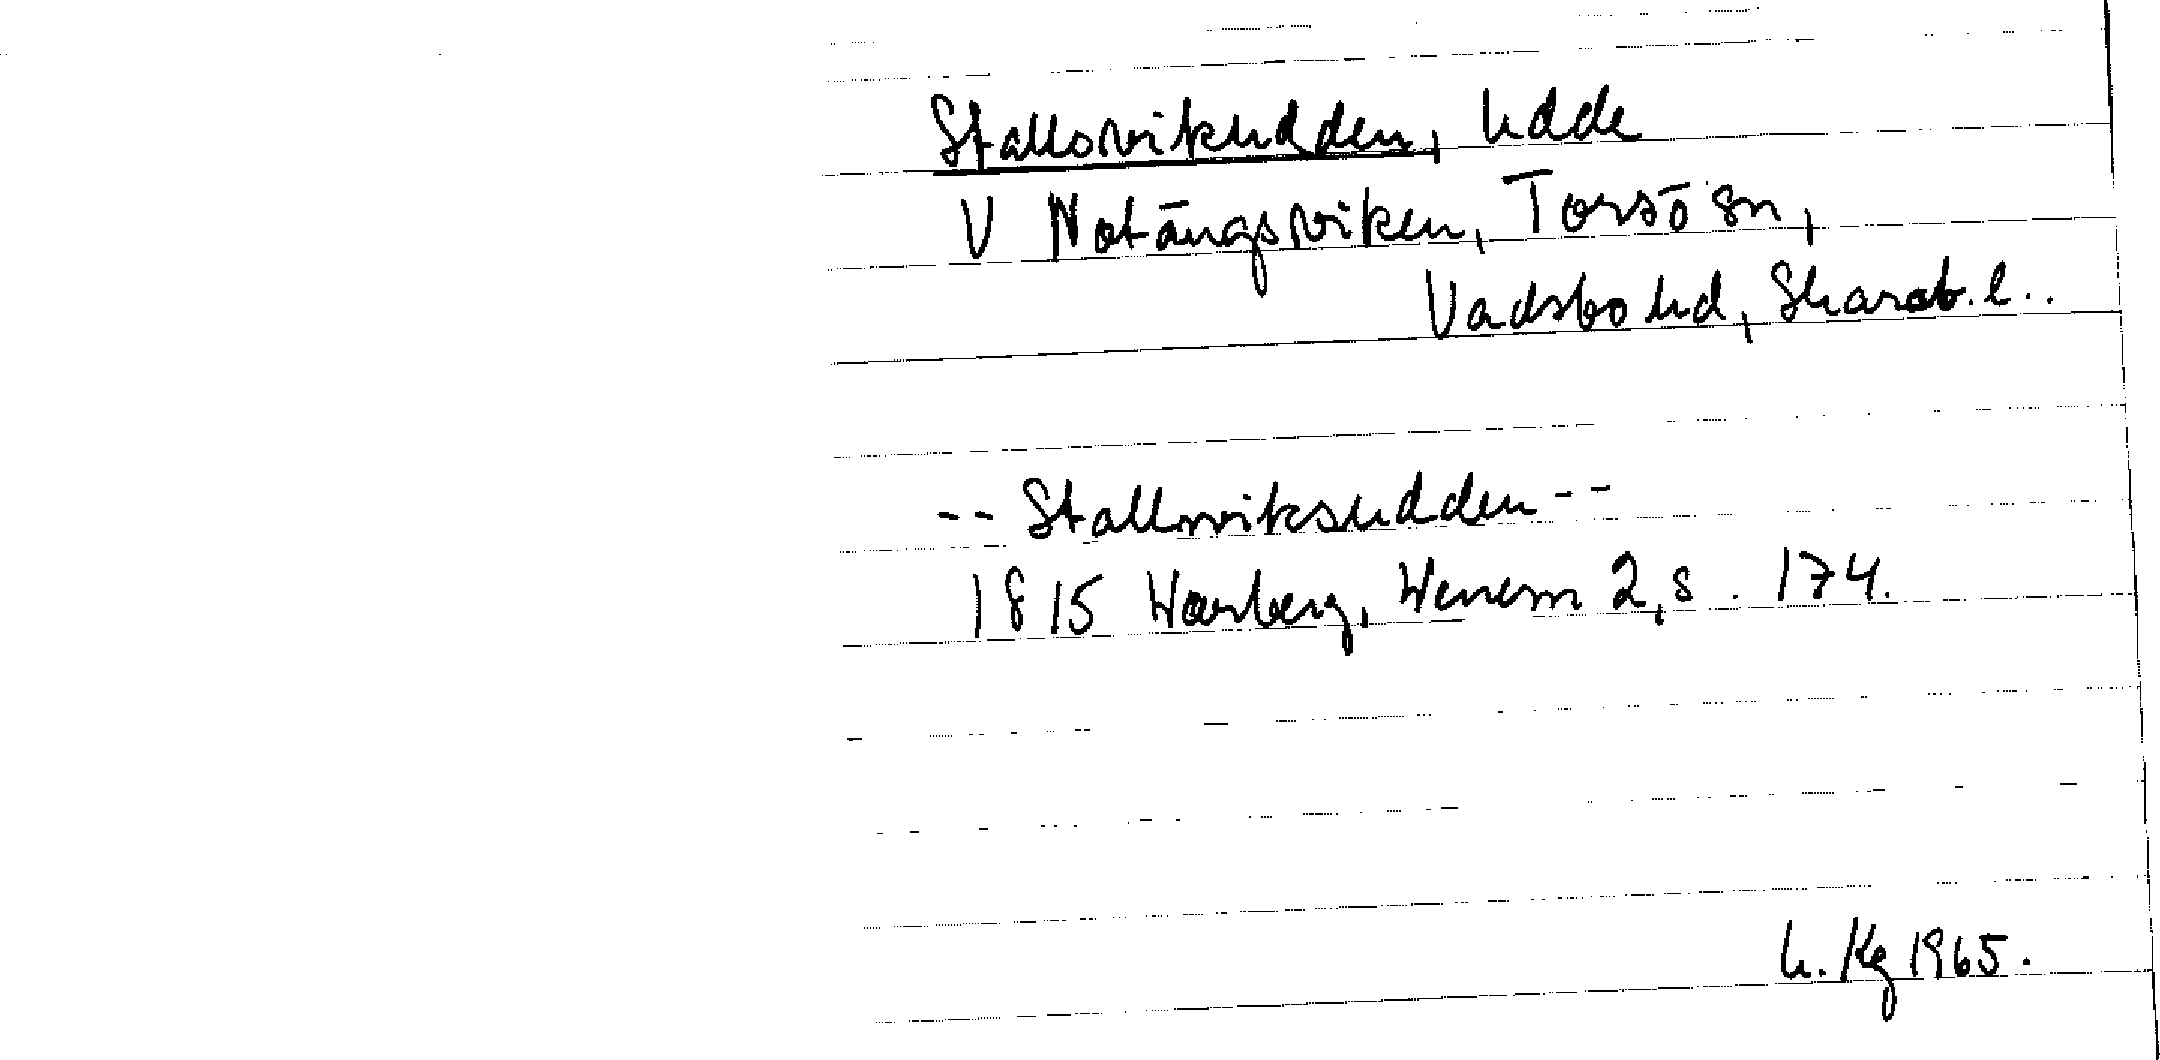 Stallsvikudden, udde
V Notängsviken, Torsö sn,
Vadsbo hd, Skarab. l..
-- Stallsviksudden --
1815 Warberg, Wenern 2, s. 174.
h. Kg 1965.